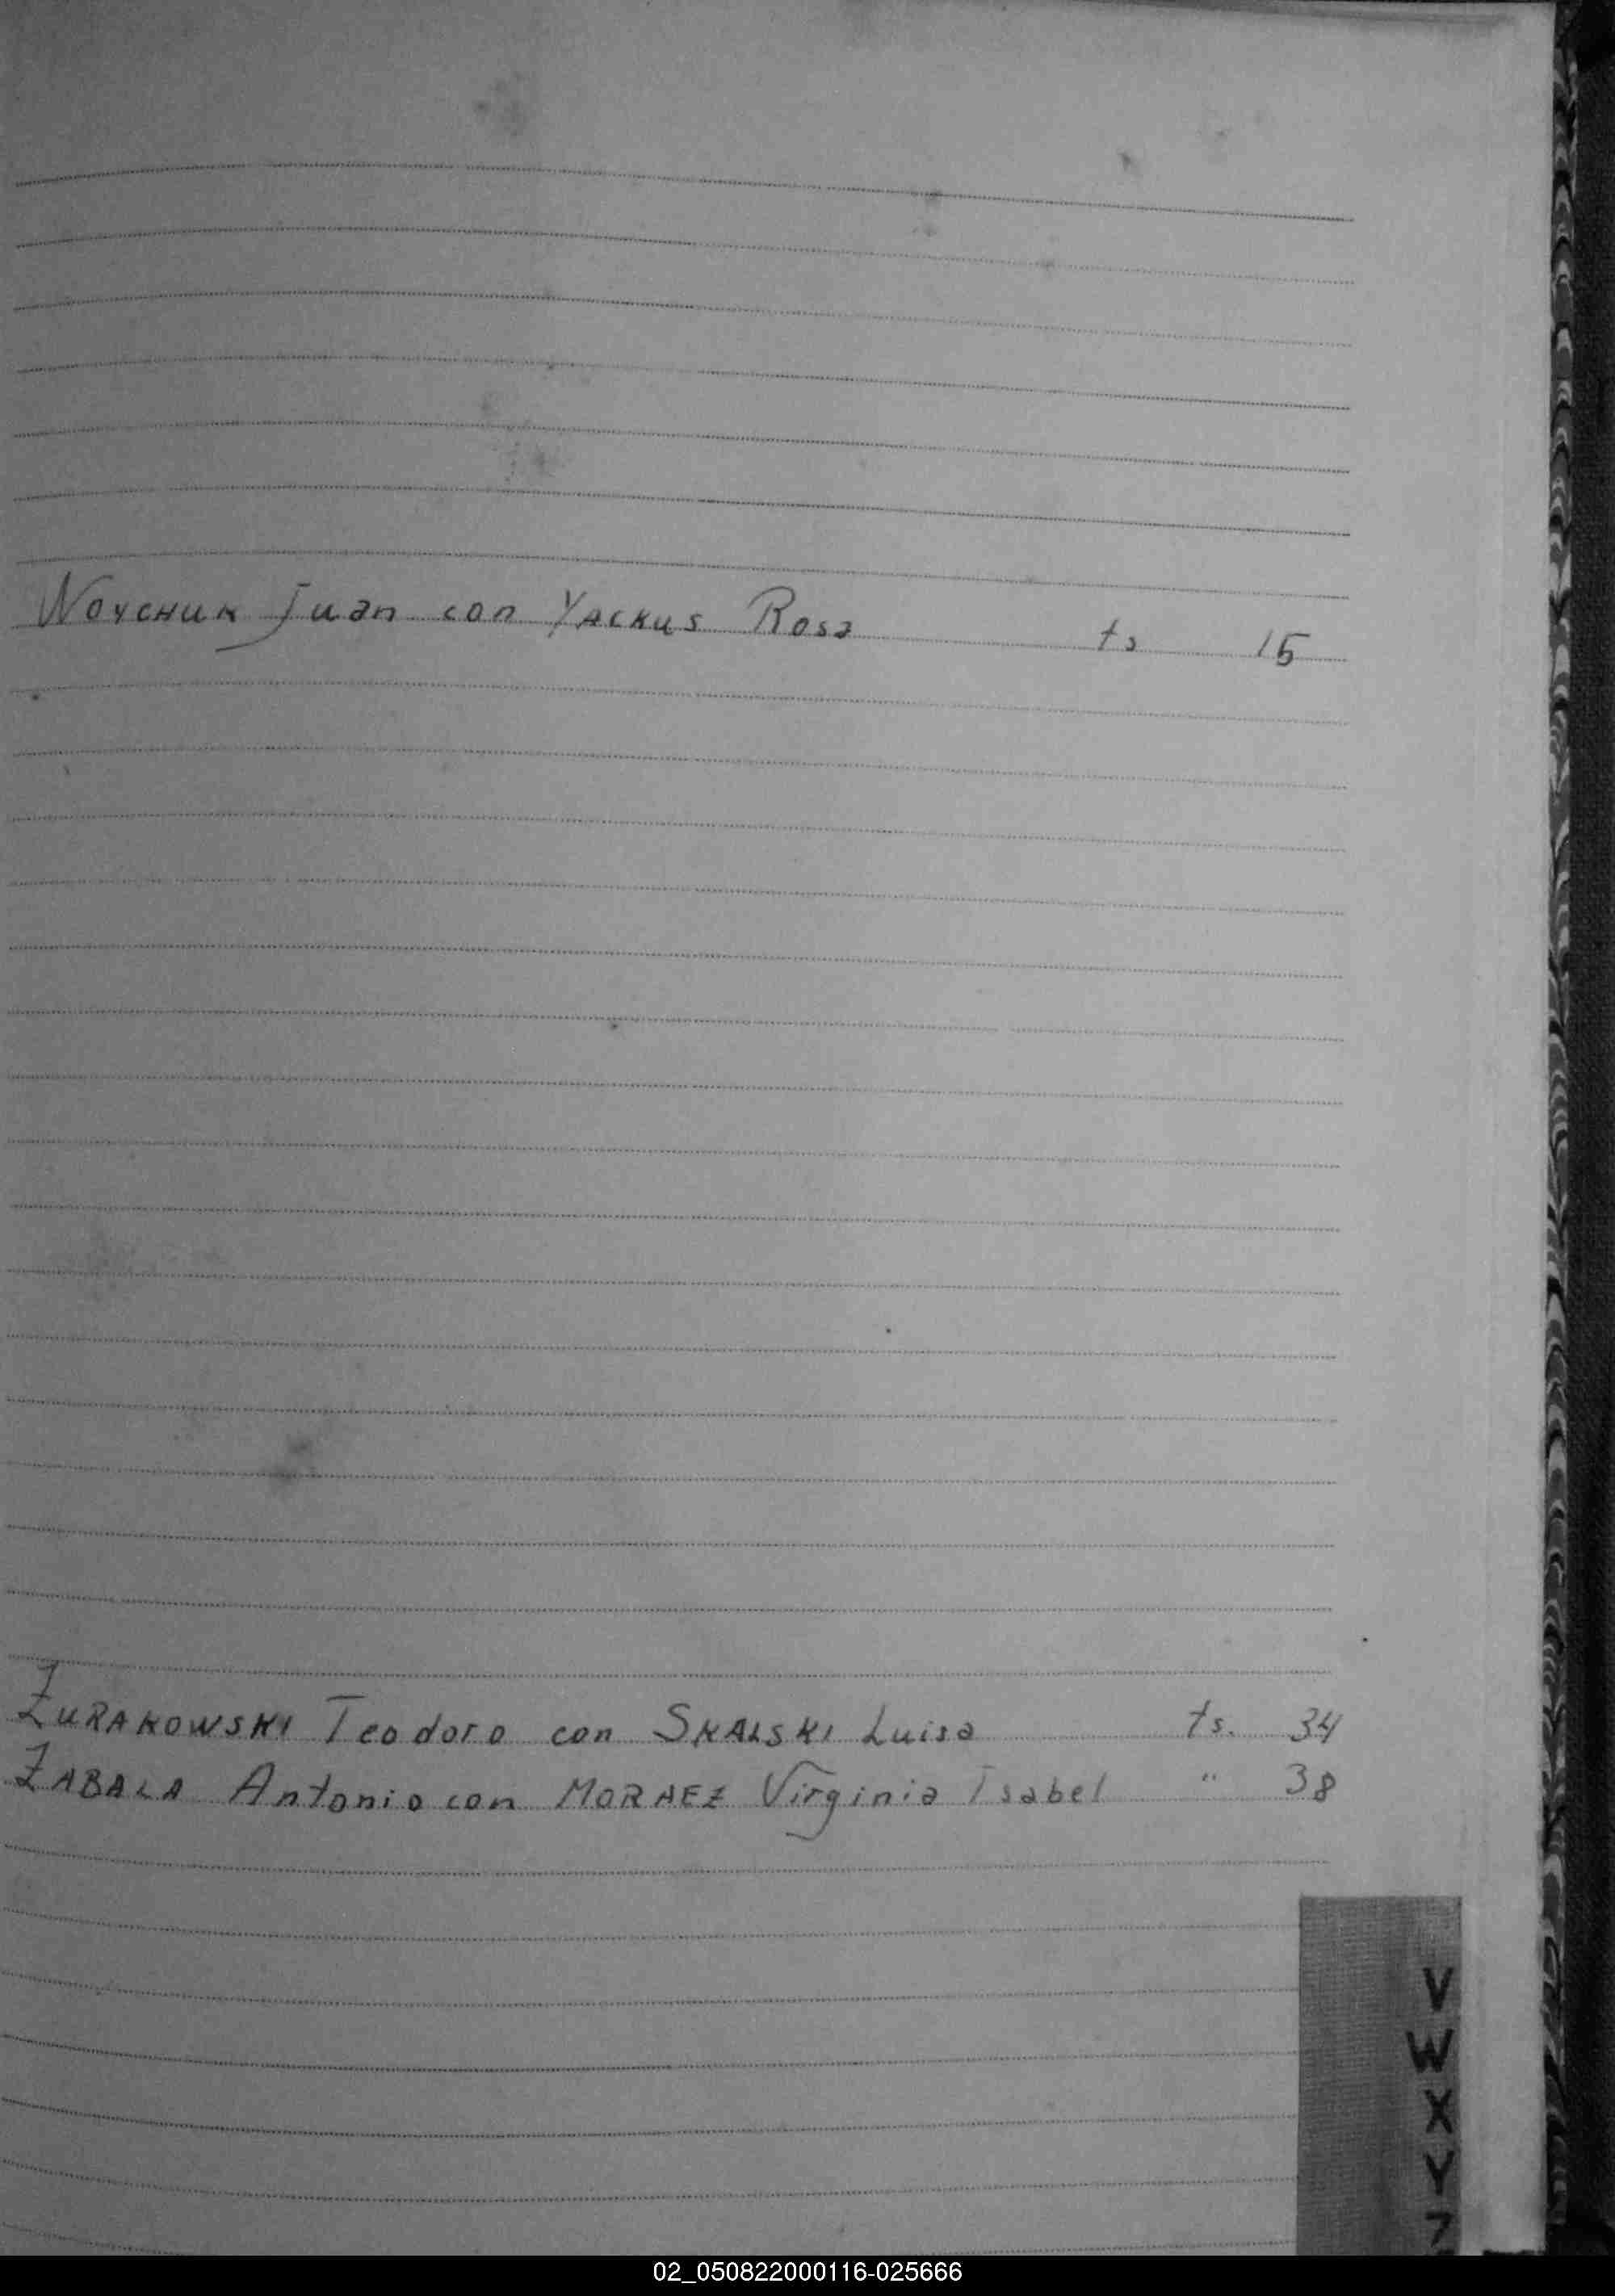 WOYCHUK Juan con YACKUS Rosa ts 15
ZURAKOWSKI Teodoro con SKALSKI Luisa ts. 34
ZABALA Antonio con MORAEZ Virginia Isabel " 38
V
W
X
Y
Z
02_050822000116-025666